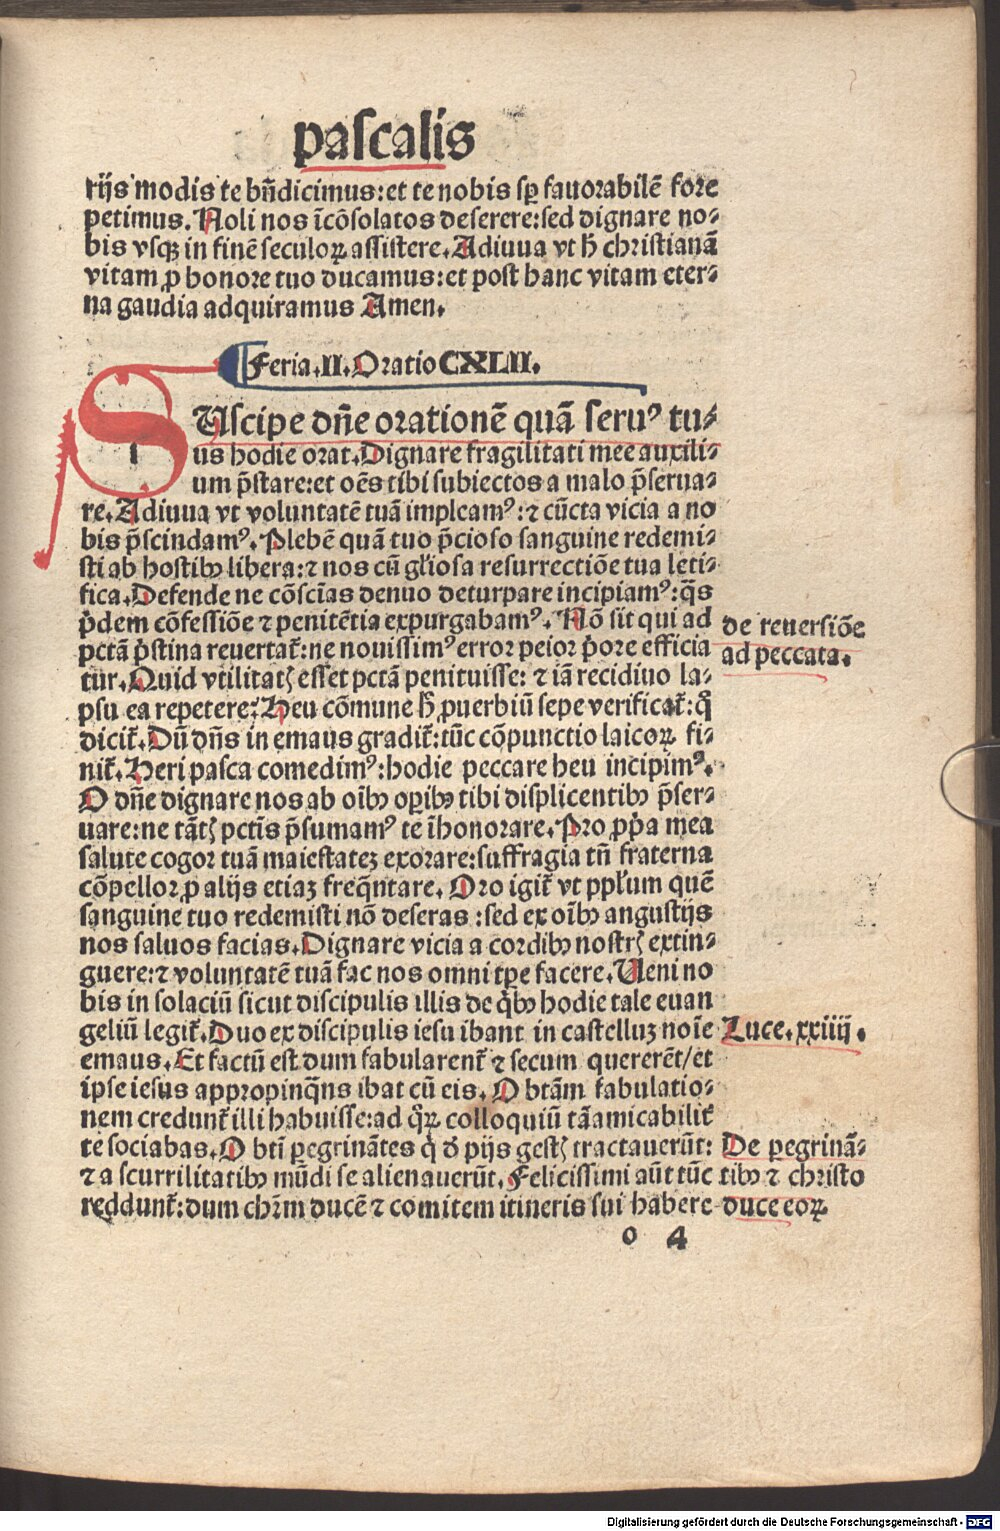 pascalis
rijs modis te bn̄dicimus: et te nobis sꝑ fauorabilē fore
petimus. Noli nos īcōsolatos deserere: sed dignare no⸗
bis vsqꝫ in finē seculoꝝ assistere. Adiuua vt h̄ christianā
vitam ꝓ honore tuo ducamus: et post hanc vitam eter⸗
na gaudia adquiramus Amen.
Feria. II. Oratio CXLII.
SUscipe dn̄e orationē quā seruꝰ tu⸗
us hodie orat. Dignare fragilitati mee auxili⸗
um p̄stare: et oēs tibi subiectos a malo p̄serua⸗
re. Adiuua vt voluntatē tuā impleamꝰ: ⁊ cūcta vicia a no
bis p̄scindamꝰ. Plebē quā tuo p̄cioso sanguine redemi⸗
sti ab hostibꝫ libera: ⁊ nos cū gl̄iosa resurrectiōe tua leti⸗
fica. Defende ne cōscīas denuo deturpare incipiamꝰ: q̄s
p̄dem cōfessiōe ⁊ penitētia expurgabamꝰ. Nō sit qui ad
pctā p̄stina reuertat᷑: ne nouissimꝰ error peior p̄ore efficia
tur. Quid vtilitatꝭ esset pctā penituisse: ⁊ iā recidiuo la⸗
psu ea repetere? Heu cōmune h̄ ꝓuerbiū sepe verificat᷑: q̄
dicit᷑. Dū dn̄s in emaus gradit᷑: tūc cōpunctio laicoꝝ fi⸗
nit᷑. Heri pasca comedimꝰ: hodie peccare heu incipimꝰ.
O dn̄e dignare nos ab oībꝫ oꝑibꝫ tibi displicentibꝫ p̄ser⸗
uare: ne tātꝭ pctīs p̄sumamꝰ te īhonorare. Pro ꝓp̄a mea
salute cogor tuā maiestateꝫ exorare: suffragia tn̄ fraterna
cōpellor ꝓ alijs etiaꝫ freq̄ntare. Oro igit᷑ vt ppl̄um quē
sanguine tuo redemisti nō deseras: sed ex oībꝫ angustijs
nos saluos facias. Dignare vicia a cordibꝫ nostrꝭ extin⸗
guere: ⁊ voluntatē tuā fac nos omni tꝑe facere. Ueni no
bis in solaciū sicut discipulis illis de q̄bꝫ hodie tale euan
geliū legit᷑. Duo ex discipulis iesu ibant in castelluꝫ noīe
emaus. Et factū est dum fabularent᷑ ⁊ secum quererēt/ et
ipse iesus appropinq̄ns ibat cū eis. O btām fabulatio⸗
nem credunt᷑ illi habuisse: ad q̄ꝝ colloquiū tā amicabilit᷑
te sociabas. O btī ꝑegrinātes q̄ d̄ pijs gestꝭ tractauerūt:
⁊ a scurrilitatibꝫ mūdi se alienauerūt. Felicissimi aūt tūc
reddunt᷑: dum chr̄m ducē ⁊ comitem itineris sui habere
o 4
de reuersiōe
ad peccata.
Luce. xxiiij.
De ꝑegrinā⸗
tibꝫ ⁊ christo
duce eoꝝ
Digitalisierung gefördert durch die Deutsche Forschungsgemeinschaft - DFG